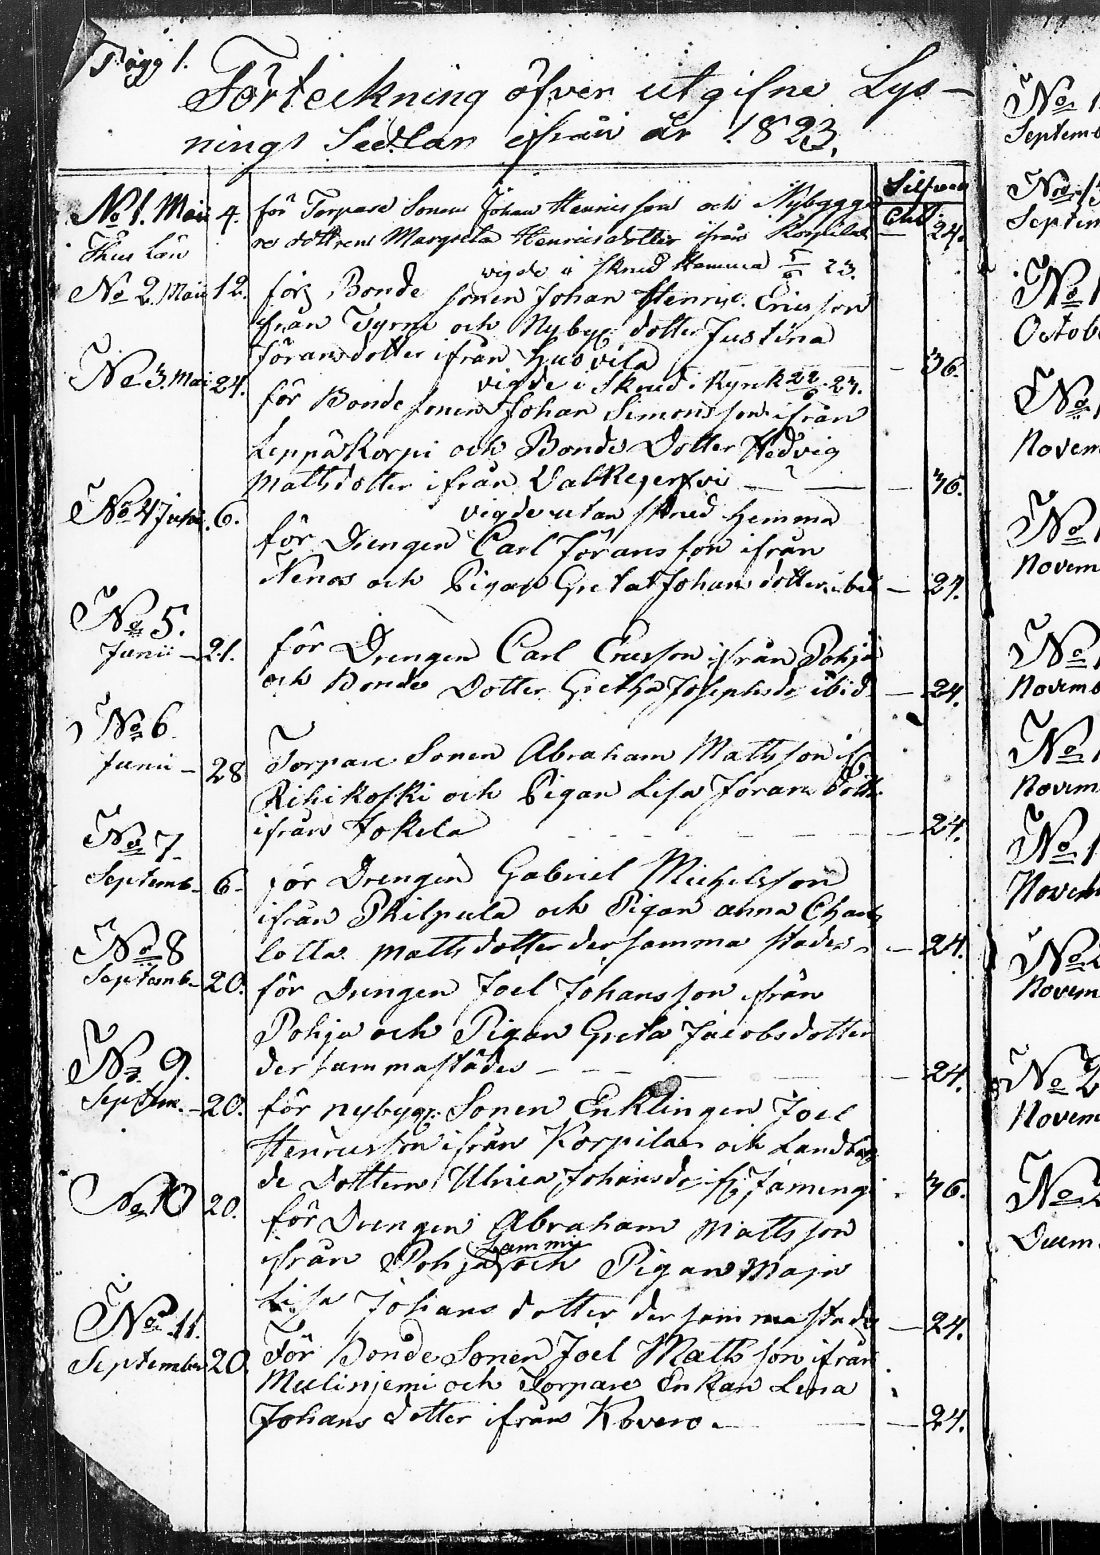 Förteckning öfver utgifne Lys-
nings Sedlar ifrån år 1823.
Silfver
No 1. Maii 4. för Torpare Sonen Johan Henricsson och Nybygga
res dottren Margreta Henricsdotter ifrån Korpilax — 24.
Thus Län
vigde i skrud Hemma 23.
No 2. Maii 12. för Bonde sonen Johan Henric Ericsson
från och Nybyg: dotter Justina
Göransdotter ifrån Husvila — 36.
vigde i Skrud i Kyrk 22/6 23.
No 3. Maii 24. för Bonde sonen Johan Simonsson ifrån
Leppäkorpi och Bonde Dotter Hedvig
Matsdotter ifrån Valkejerfvi — 36.
vigde utan skrud hemma
No 4 Junii 6. för Drengen Carl Göransson ifrån
och Pigan Greta Johansdotter ibid — 24.
No 5.
Junii — 21. för Drengen Carl Ericsson ifrån Pohja
och Bonde Dotter Gretha Josephsdr ibid — 24.
No 6
Junii — 28 Torpare Sonen Abraham Mattsson ifr
Rihikoski och Pigan Lisa Görans Dotter
ifrån Jokela — 24.
No 7
Septemb. 6 för Drengen Gabriel Michelsson
ifrån Philpula och Pigan anna Char
lotta Mattsdotter dersamma stades — 24.
No 8
Septemb. 20. för Drengen Joel Johansson ifrån
Pohja och Pigan Greta Jacobsdotter
dersammastädes — 24.
No 9.
Septem. — 20. för nybygg: Sonen Enklingen Joel
Henricsson ifrån Korpilax och Landbon
de Dottern Ulrica Johansdr ifr Jämengi — 36.
No 10 20. för Drengen Abraham Mattsson
Lammi
ifrån Pohja och Pigan Maja
Lisa Johans dotter dersammastades — 24.
No 11.
September 20. För Bonde Sonen Joel Mattsson ifrån
Mulinjemi och Torpare Enkan Lena
Johans dotter ifrån Kovero — 24.
No 1
Septem
No 13
Septem
No 1
Octob
No 1
Novem
No 1
Novem
No 1
Novem
No 1
Novem
No 1
Novem
No 2
Novem
No 2
Novem
No 2
Decem